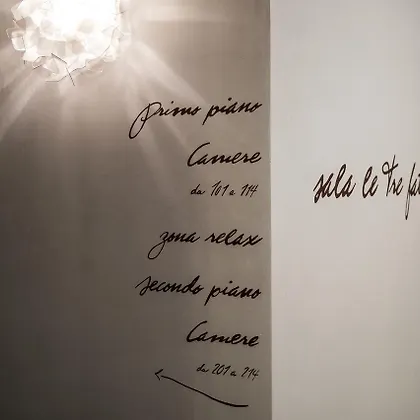 primo piano
Camere
da 101 a 114
zona relax
secondo piano
Camere
da 201 a 214
sala le tre